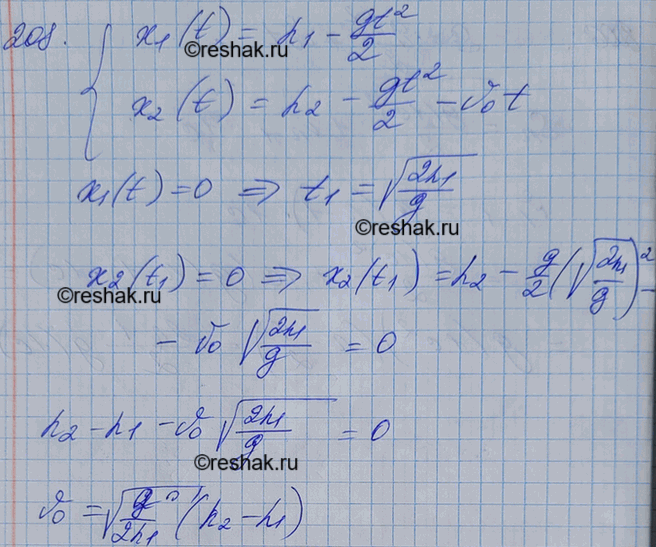 208. { x₁(t) = h₁ - gt²/2
©reshak.ru
x₂(t) = h₂ - gt²/2 - v₀t
x₁(t) = 0 ⇒ t₁ = √(2h₁/g)
©reshak.ru
x₂(t₁) = 0 ⇒ x₂(t₁) = h₂ - g/2 (√(2h₁/g))² -
©reshak.ru
- v₀ √(2h₁/g) = 0
h₂ - h₁ - v₀ √(2h₁/g) = 0
©reshak.ru
v₀ = √(g/2h₁) (h₂ - h₁)